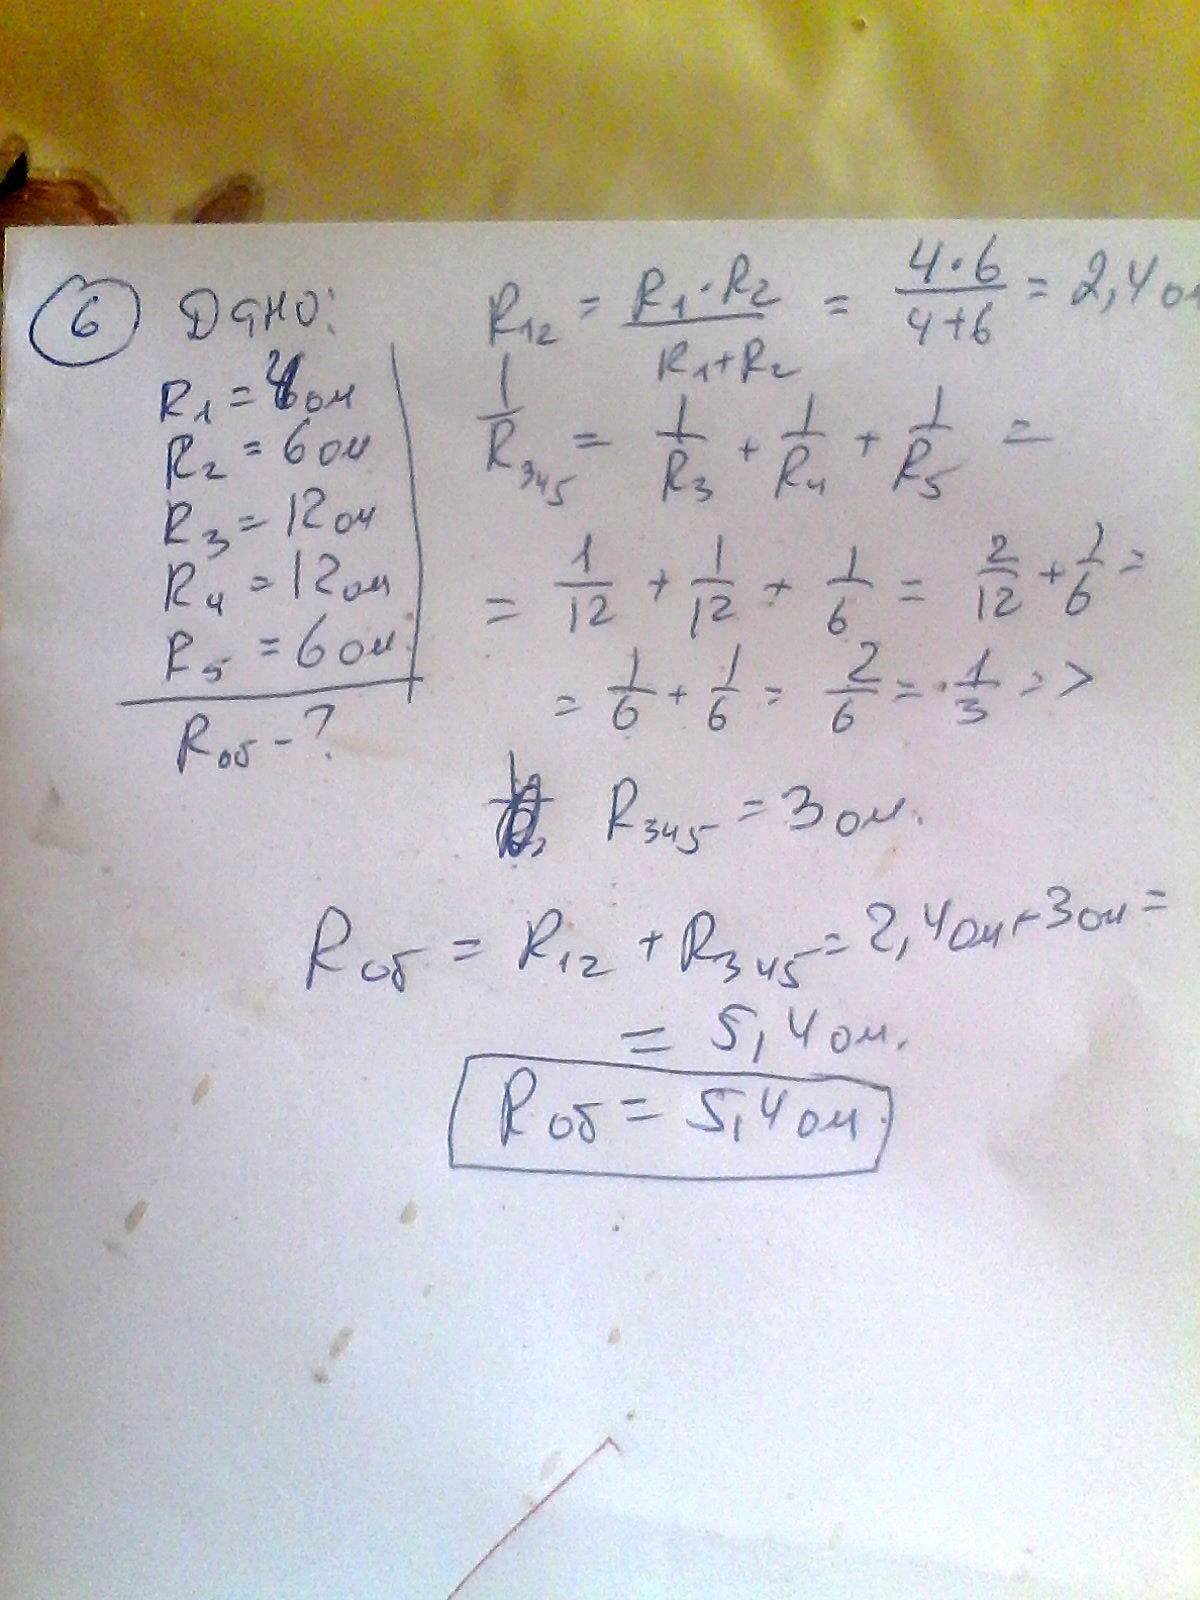 6 Дано:
R1 = 4 ом
R2 = 6 ом
R3 = 12 ом
R4 = 12 ом
R5 = 6 ом
Rоб - ?
R12 = R1·R2 / R1+R2 = 4·6 / 4+6 = 2,4 ом
1/R345 = 1/R3 + 1/R4 + 1/R5 =
= 1/12 + 1/12 + 1/6 = 2/12 + 1/6 =
= 1/6 + 1/6 = 2/6 = 1/3 =>
R345 = 3 ом.
Rоб = R12 + R345 = 2,4 ом + 3 ом =
= 5,4 ом.
Rоб = 5,4 ом.